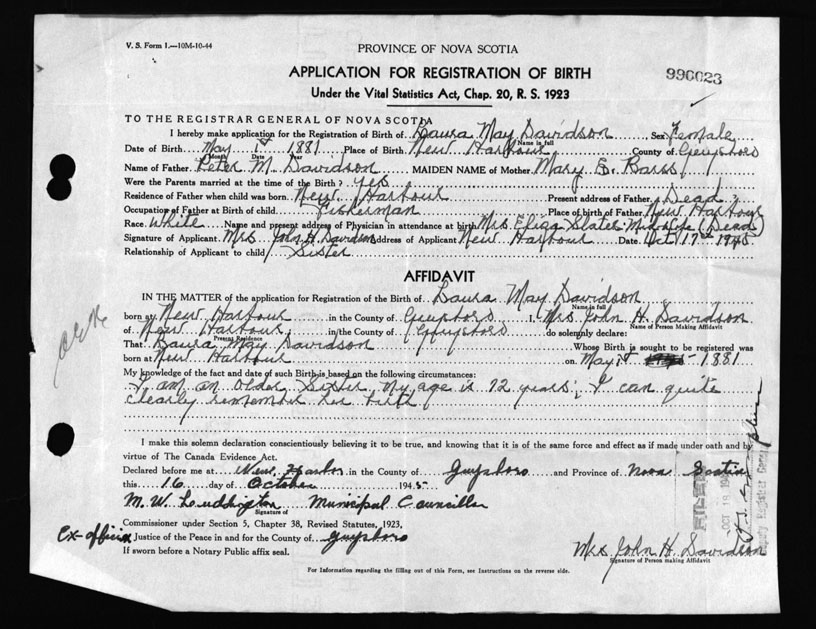 V. S. Form 1.—10M-10-44
PROVINCE OF NOVA SCOTIA
APPLICATION FOR REGISTRATION OF BIRTH
990023
Under the Vital Statistics Act, Chap. 20, R. S. 1923
TO THE REGISTRAR GENERAL OF NOVA SCOTIA
I hereby make application for the Registration of Birth of Laura May Davidson Sex Female
Name in full
Date of Birth May 1st 1881 Place of Birth New Harbour County of Guysboro
Month Date Year
Name of Father Peter M. Davidson MAIDEN NAME of Mother Mary E. Barss
Were the Parents married at the time of the Birth? yes
Residence of Father when child was born New Harbour Present address of Father Dead
Occupation of Father at Birth of child Fisherman Place of birth of Father New Harbour
Race White Name and present address of Physician in attendance at birth Mrs Eliza Slater Midwife (Dead)
Signature of Applicant Mrs John H Davidson Address of Applicant New Harbour Date Oct 17 1945
Relationship of Applicant to child Sister
AFFIDAVIT
IN THE MATTER of the application for Registration of the Birth of Laura May Davidson
Name in full
born at New Harbour in the County of Guysboro I, Mrs John H. Davidson
Name of Person Making Affidavit
of New Harbour in the County of Guysboro do solemnly declare:
Present Residence
That Laura May Davidson Whose Birth is sought to be registered was
born at New Harbour on May 1st 1881
My knowledge of the fact and date of such Birth is based on the following circumstances:
I am an older Sister my age is 72 years; I can quite
clearly remember her birth
I make this solemn declaration conscientiously believing it to be true, and knowing that it is of the same force and effect as if made under oath and by
virtue of The Canada Evidence Act.
Declared before me at New Harbor in the County of Guysboro and Province of Nova Scotia
this 16 day of October 1945
M. W. Luddington Municipal Councillor
Signature of
Commissioner under Section 5, Chapter 38, Revised Statutes, 1923,
Ex-officio Justice of the Peace in and for the County of Guysboro
If sworn before a Notary Public affix seal.
Mrs. John H. Davidson
Signature of Person making Affidavit
For Information regarding the filling out of this Form, see Instructions on the reverse side.
FILED
OCT 18 194
Deputy Registrar General